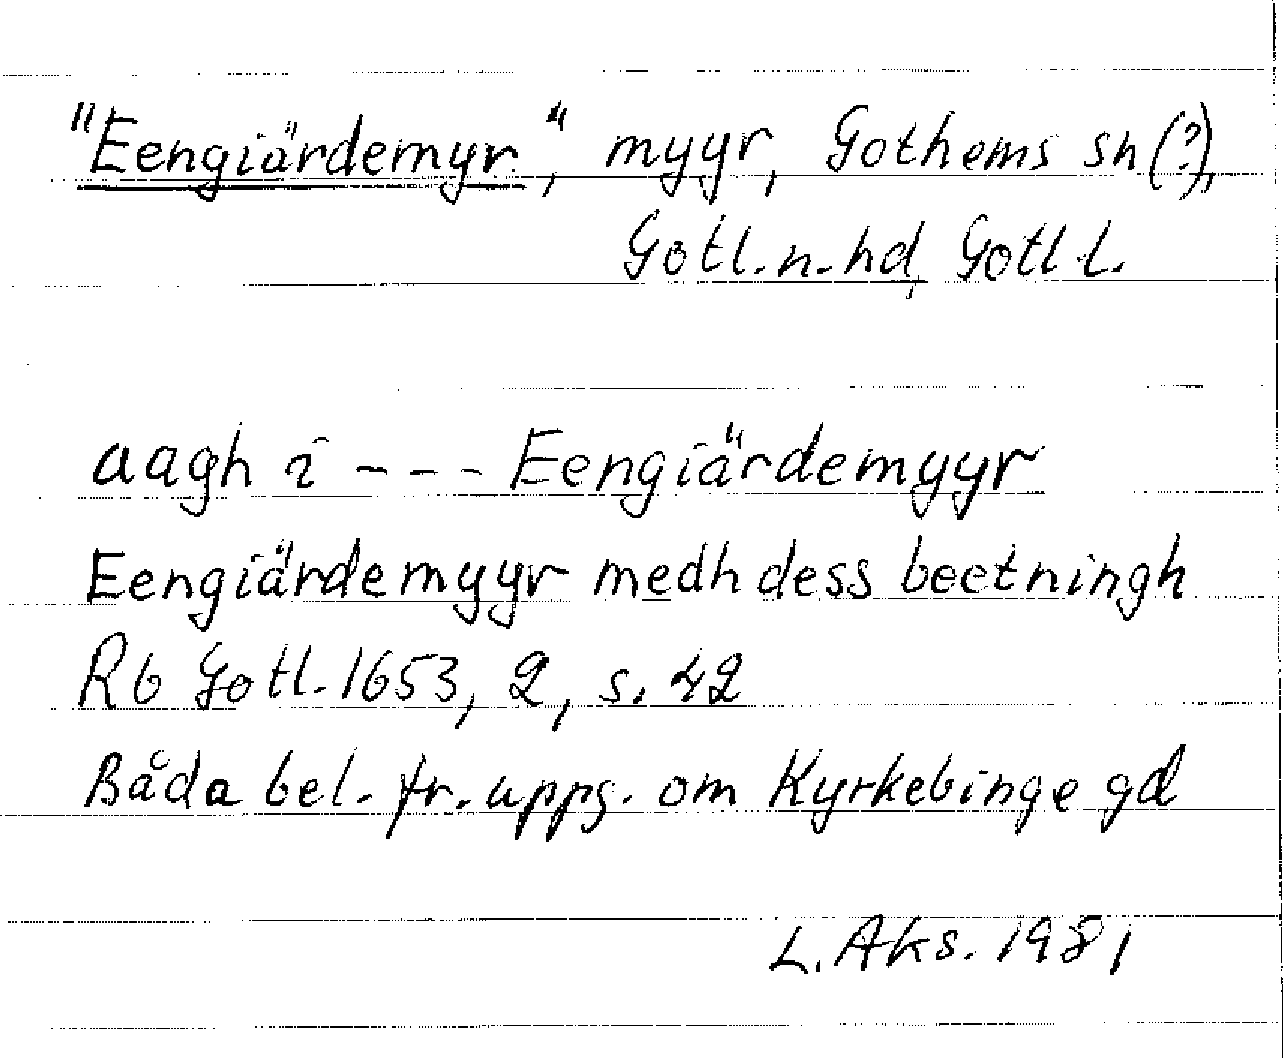 "Eengiärdemyr", myyr, Gothems sn(?),
Gotl.n.hd, Gotl l.
aagh i - - - Eengiärdemyyr
Eengiärdemyyr medh dess beetningh
Rb Gotl. 1653, 2, s. 42
Båda bel. fr. uppg. om Kyrkebinge gd
L. Aks. 1981